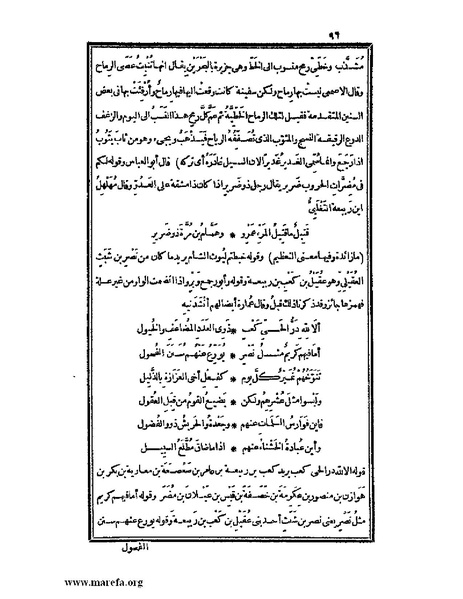 ٩٦
متسذب وخطى رمح منسوب الى الخط وهى جزيرة بالبحرين يقال انها تنبت عصى الرماح
وقال الاصمعى ليست بها رماح ولكن سفينة كانت وقعت اليها فيها رماح وأرفئت بها فى بعض
السنين المتقدمة فقيل لتلك الرماح الخطية ثم عم كل رمح هذا النسب الى اليوم والزغف
الدروع الرقيقة النسج والمثوب الذى تصفقه الرياح فيذهب ويجىء وهو من ثاب يثوب
اذا رجع وانما سمى الغدير غديرا لان السيل غادره أى تركه) قال أبو العباس وقوله لكم
فى مضرات الحروب ضرير يقال رجل ذو ضرير اذا كان ذا مشقة على العدو وقال مهلهل
ابن ربيعة التغلبى
قتيل ما قتيل المرء عمرو * وهمام بن مرة ذو ضرير
(ما زائدة وفيها معنى التعظيم) وقوله خبطتم ليوث الشام يريد ما كان من نصر بن شبث
العقيلى وهو عقيل بن كعب بن ربيعة وقوله وأبو رجع وبر واذا انضمت الواو من غير علة
فهمزها جائز وقد ذكرنا ذلك قبل وقال عمارة أيضا لهم أنشدنيه
ألا لله در الحى كعب * ذوى العدد المضاعف والخيول
أما فيهم كريم مثل نصر * يورع عنهم سنن الفحول
تنوخهم نمير كل يوم * كفعل أخى العزازة بالذليل
وليسوا مثل عشرهم ولكن * يضيع القوم من قبل العقول
فأين فوارس السلمات عنهم * وجعدة والحريش ذوو الفضول
وأين عبادة الخشناء عنهم * اذا ما ضاق مطلع السبيل
قوله ألا لله در الحى كعب يريد كعب بن ربيعة بن عامر بن صعصعة بن معاوية بن بكر بن
هوازن بن منصور بن عكرمة بن خصفة بن قيس بن عيلان بن مضر وقوله أما فيهم كريم
مثل نصر يعنى نصر بن شبث أحد بنى عقيل بن كعب بن ربيعة وقوله يورع عنهم سنن
الفحول
www.marefa.org